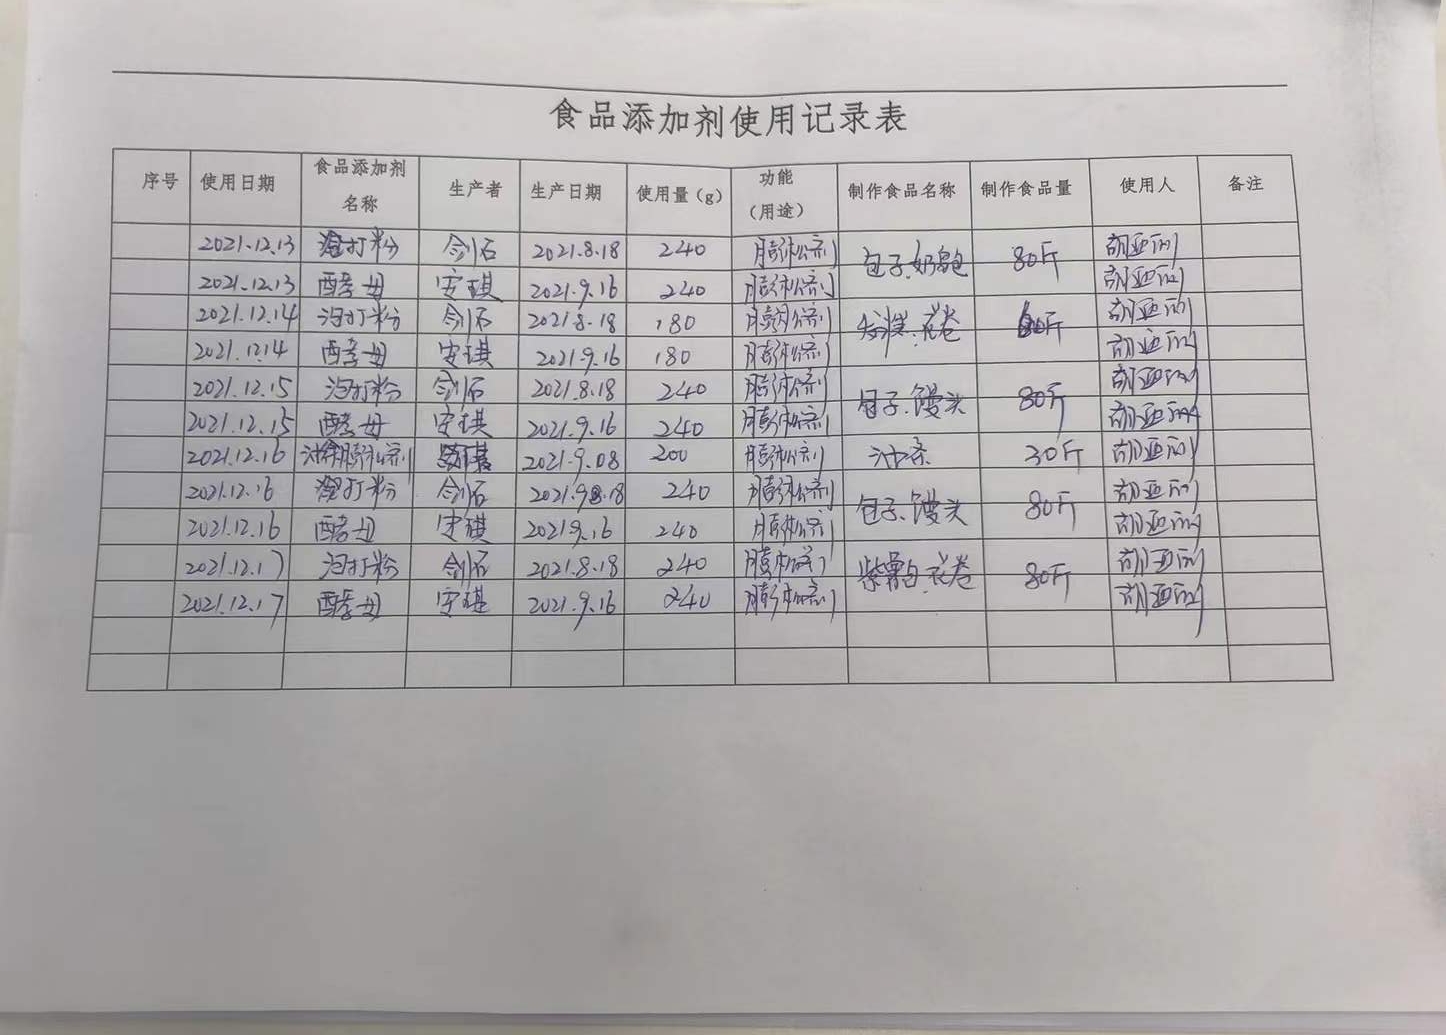 食品添加剂使用记录表
序号 使用日期 食品添加剂名称 生产者 生产日期 使用量（g） 功能（用途） 制作食品名称 制作食品量 使用人 备注
2021.12.13 泡打粉 剑石 2021.8.18 240 膨松剂 包子.奶窝包 80斤
2021.12.13 酵母 安琪 2021.9.16 240 膨松剂
2021.12.14 泡打粉 剑石 2021.8.18 180 膨松剂 花卷 60斤
2021.12.14 酵母 安琪 2021.9.16 180 膨松剂
2021.12.15 泡打粉 剑石 2021.8.18 240 膨松剂 包子.馒头 80斤
2021.12.15 酵母 安琪 2021.9.16 240 膨松剂
2021.12.16 油条膨松剂 安琪 2021.9.08 200 膨松剂 油条 30斤
2021.12.16 泡打粉 剑石 240 膨松剂 包子.馒头 80斤
2021.12.16 酵母 安琪 2021.9.16 240 膨松剂
2021.12.17 泡打粉 剑石 2021.8.18 240 膨松剂 紫薯包.花卷 80斤
2021.12.17 酵母 安琪 2021.9.16 240 膨松剂